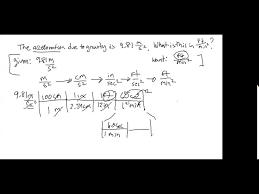 The acceleration due to gravity is 9.81 m/s². What is this in ft/min²?
given: 9.81 m/s² want: ft/min²
m/s² → cm/s² → in/sec² → ft/sec² → ft/min²
9.81 m/s² | 100 cm/1 m | 1 in/2.54 cm | 1 ft/12 in
60 sec/1 min